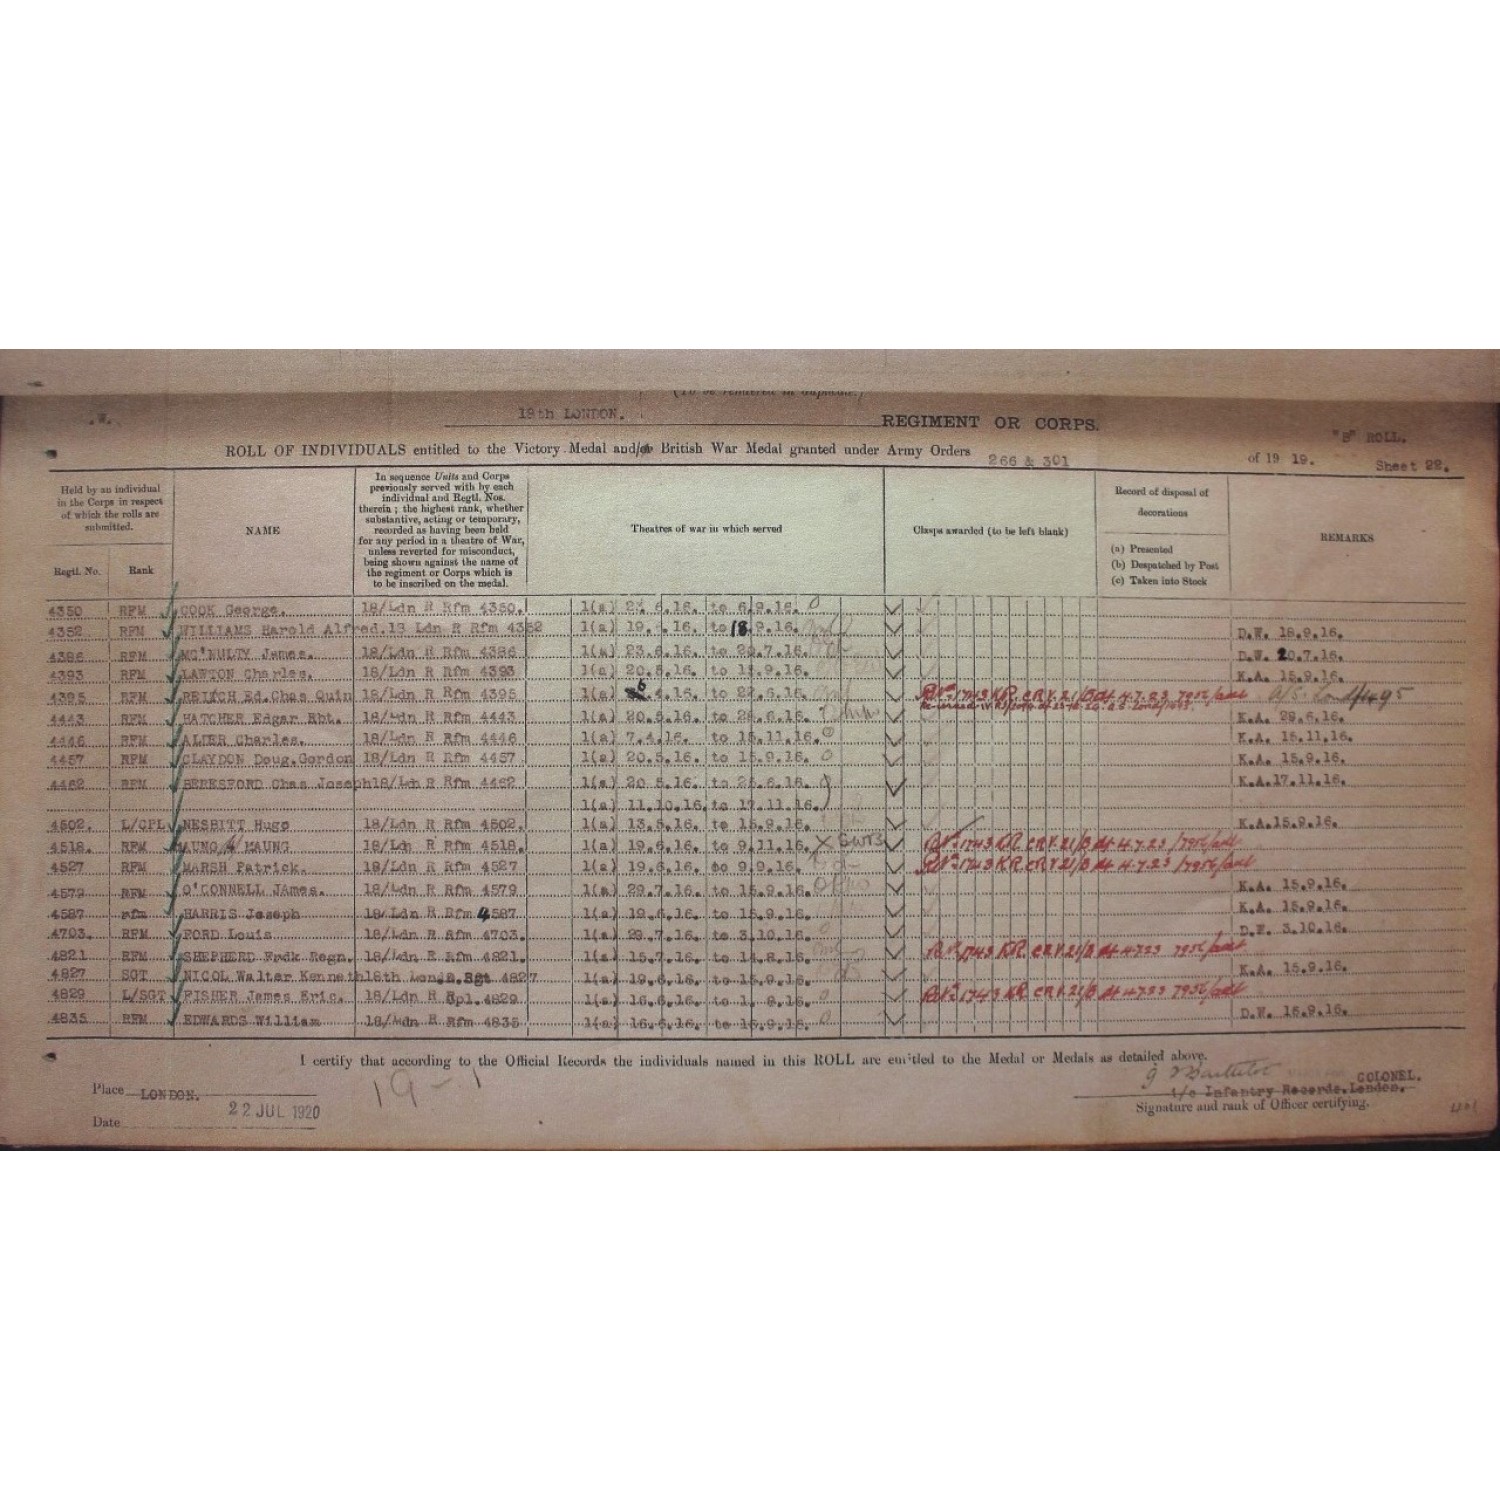 (To be rendered in duplicate.)
.W. 19th LONDON. REGIMENT OR CORPS.
"B" ROLL.
ROLL OF INDIVIDUALS entitled to the Victory Medal and/or British War Medal granted under Army Orders 266 & 301 of 19 19. Sheet 22.
Held by an individual in the Corps in respect of which the rolls are submitted.
Regtl. No. Rank
NAME
In sequence Units and Corps
previously served with by each
individual and Regtl. Nos.
therein; the highest rank, whether
substantive, acting or temporary,
recorded as having been held
for any period in a theatre of War,
unless reverted for misconduct,
being shown against the name of
the regiment or Corps which is
to be inscribed on the medal.
Theatres of war in which served
Clasps awarded (to be left blank)
Record of disposal of
decorations
(a) Presented
(b) Despatched by Post
(c) Taken into Stock
REMARKS
4350 RFM COOK George. 18/Ldn R Rfm 4350. 1(a) 6.16. to 6.9.16. 0
4352 RFM WILLIAMS Harold Alfred. 18 Ldn R Rfm 4352 1(a) 19. .16. to 18.9.16. D.W. 18.9.16.
4386 RFM MC'NULTY James. 18/Ldn R Rfm 4386 1(a) 23.6.16. to 20.7.16. D.W. 20.7.16.
4393 RFM LAWTON Charles. 18/Ldn R Rfm 4393 1(a) 20.5.16. to .9.16. K.A. 15.9.16.
4395 RFM Ed.Chas Quin 18/Ldn R Rfm 4395 1(a) .4.16. to .6.16. 1743 KR. CRV.21/B dt 4.7.23 7956/adt
4443 RFM HATCHER Edgar Rbt. 18/Ldn R Rfm 4443 1(a) 20.5.16. to .6.16. K.A. 29.6.16.
4446 RFM Charles. 18/Ldn R Rfm 4446 1(a) 7.4.16. to 15.11.16. 0 K.A. 15.11.16.
4457 RFM CLAYDON Doug.Gordon 18/Ldn R Rfm 4457 1(a) 20.5.16. to 15.9.16. 0 K.A. 15.9.16.
4462 RFM BERESFORD Chas Joseph 18/Ldn R Rfm 4462 1(a) 20 5.16. to .6.16. K.A. 17.11.16.
1(a) 11.10.16. to 17.11.16.
4502. L/CPL NESBITT Hugo 18/Ldn R Rfm 4502. 1(a) 13.5.16. to 15.9.16. K.A. 15.9.16.
4518. RFM MAUNG 18/Ldn R Rfm 4518. 1(a) 19.6.16. to 9.11.16. X 1743 KR. CRV.21/B dt 4.7.23 /7956/adt
4527 RFM MARSH Patrick. 18/Ldn R Rfm 4527 1(a) 19.6.16. to 9.9.16. 1743 KR. CRV.21/B dt 4.7.23 /7956/adt
4579 RFM O'CONNELL James. 18/Ldn R Rfm 4579 1(a) 29.7.16. to 15.9.16. K.A. 15.9.16.
4587 rfm HARRIS Joseph 18/Ldn R Rfm 4587 1(a) 19.6.16. to 15.9.16. K.A. 15.9.16.
4703. RFM FORD Louis 18/Ldn R Rfm 4703. 1(a) 29.7.16. to 3.10.16. 0 D.W. 3.10.16.
4821 RFM SHEPHERD Frdk Regn. 18/Ldn R Rfm 4821. 1(a) 15.7.16. to 14.8.16. 1743 KR. CRV.21/B dt 4.7.23 7956/adt
4827 SGT NICOL Walter Kenneth 18th Lon.R Sgt 4827 1(a) 19.6.16. to 15.9.16. K.A. 15.9.16.
4829 L/SGT FISHER James Eric. 18/Ldn R Cpl.4829 1(a) 16.6.16. to 1. 8.16. 0 1743 KR. CRV.21/B dt 4.7.23 7956/adt
4835 RFM EDWARDS William 18/Ldn R Rfm 4835 1(a) 16.6.16. to 16.9.16. 0 D.W. 16.9.16.
I certify that according to the Official Records the individuals named in this ROLL are entitled to the Medal or Medals as detailed above.
Place LONDON.
COLONEL.
i/c Infantry Records.London.
Signature and rank of Officer certifying.
Date 22 JUL 1920